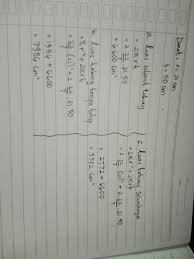 Diket: r = 21 cm
t = 50 cm
a. luas selimut tabung
= 2πrt
= 2 . 22/7 . 21 . 50
= 6600 cm²
b. luas tabung tanpa tutup
= πr² + 2πrt
= 22/7 (21)² + 2 . 22/7 . 21 . 50
= 1386 + 6600
= 7986 cm²
c. luas tabung seluruhnya
= 2πr² + 2πrt
= 2 . 22/7 (21)² + 2 . 22/7 . 21 . 50
= 2772 + 6600
= 9372 cm²